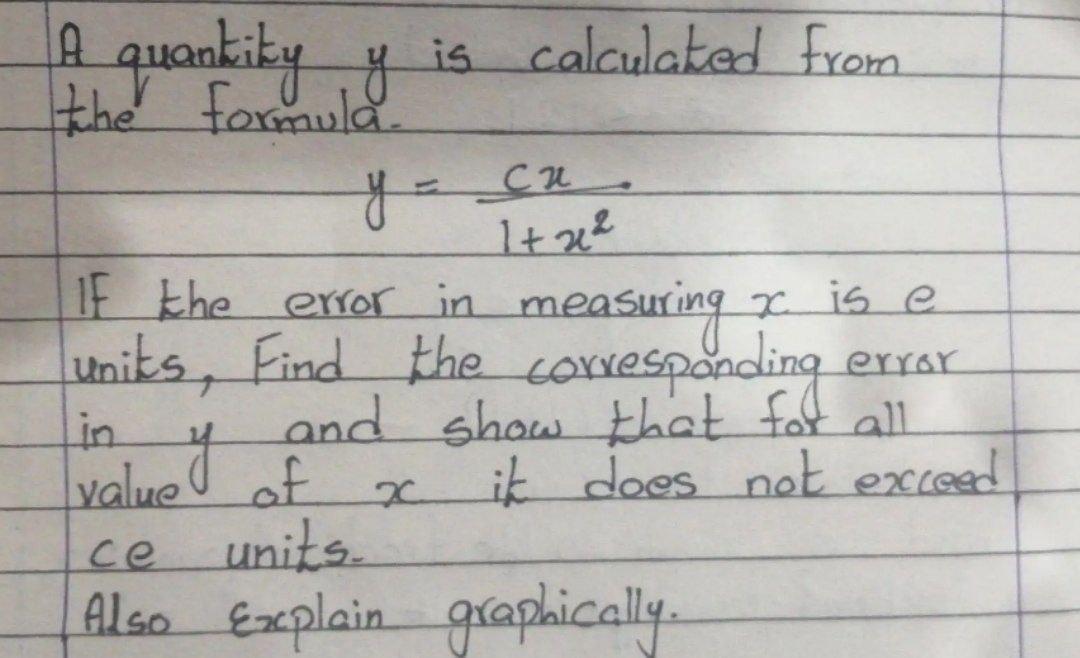 A quantity y is calculated from
the formula.
y = cx
1+x²
If the error in measuring x is e
units, Find the corresponding error
in y and show that for all
value of x it does not exceed
ce units.
Also Explain graphically.